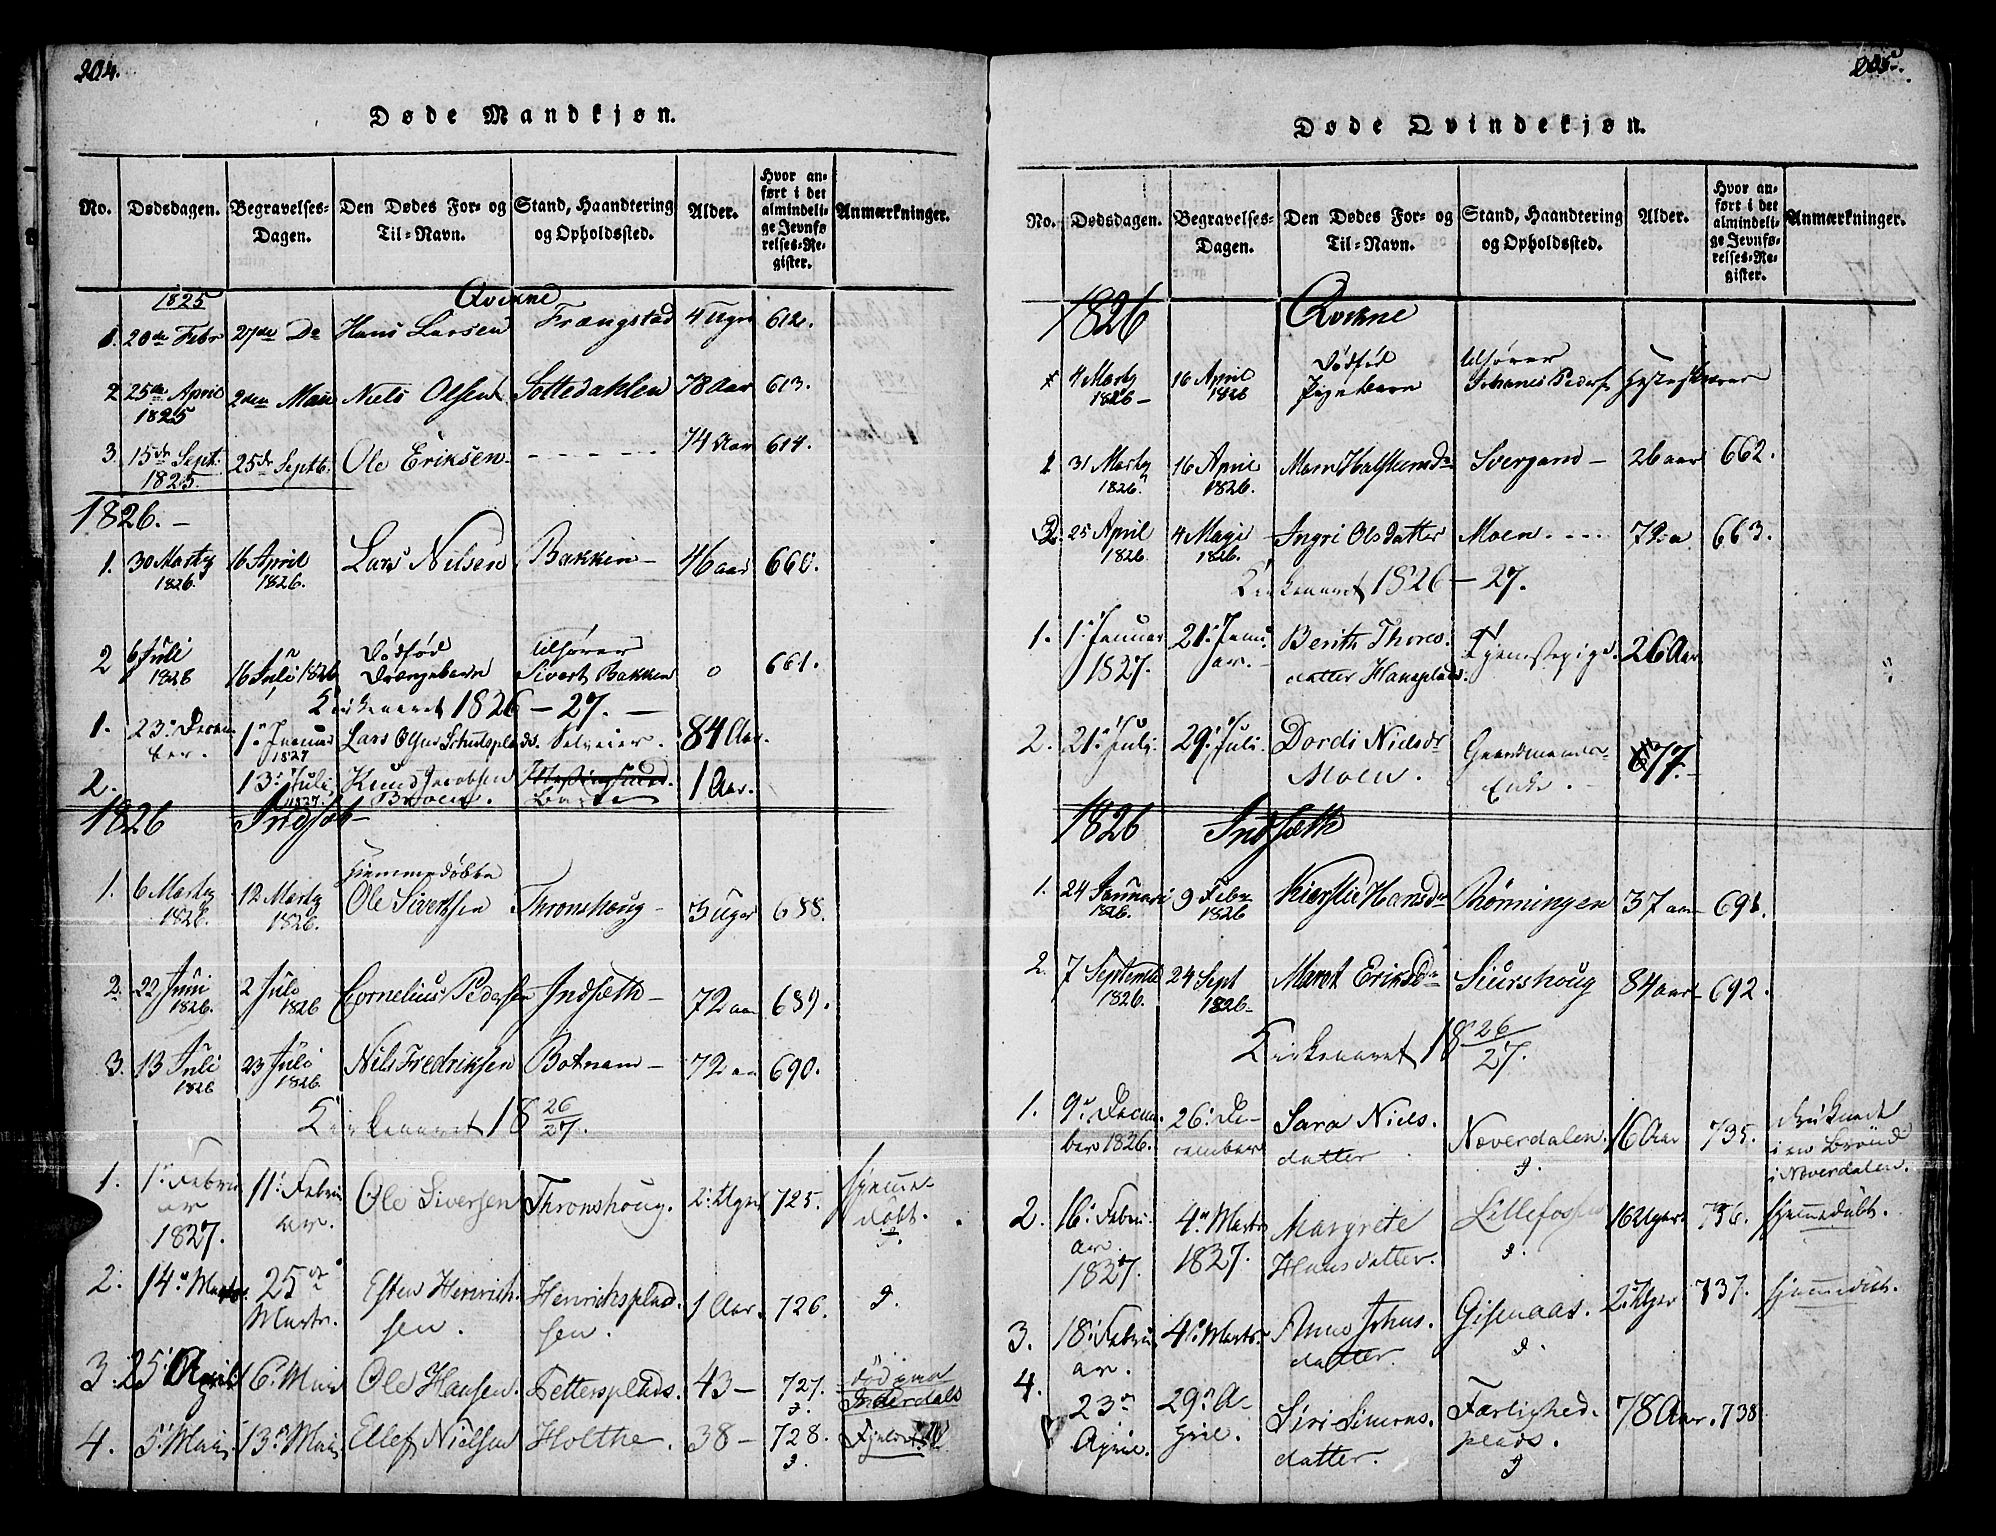 204.
Døde Mandkjøn.
No. Dødsdagen. Begravelses-Dagen. Den Dødes For- og Til-Navn. Stand, Haandtering og Opholdssted. Alder. Hvor anført i det almindelige Jevnførelses-Register. Anmærkninger.
1825 Qvikne
1. 20de Febr 27de Do Hans Larsen Frængstad 4 Uger 612.
2 25de April 1825 2den Maii Niels Olsen Sottedahlen 78 Aar 613.
3. 15de Sept. 1825. 25de Septb. Ole Eriksen - - - - - - 74 Aar 614.
1826. -
1. 30 Marty 1826. 16 April 1826. Lars Nilsen Bakken - 46 aar 660.
2 6 Juli 1826 16 Juli 1826 Dødfød Drengebarn tilhører Sivert Bakken 0 661.
Kirkeaaret 1826 - 27. -
1. 23. Decem- ber. 1. Januar 1827 Lars Olsen Selveier. 84 Aar.
2. 13. Juli 1827. Knud Jacobsen 1 Aar.
1826 Indset
1. 6 Marty 1826. 12 Marty 1826. Hjemmedøbte Ole Sivertsen Thronshoug - 3 Uger 688.
2. 22 Juni 1826. 2 Juli 1826 Cornelius Pedersen Indsæth - 72 aar 689.
3. 13 Juli 1826 23 Juli 1826. Nils Fredriksen Botnam - 72 aar 690.
Kirkeaaret 18 26/27.
1. 1. Febru- ar 1827. 11. Febru- ar. Ole Siversen Thronshoug. 2. Uger 725. Hjemme- døbt.
2. 14. Marts 25de Marts. Esten Henrich- sen. Henrichsplad- sen. 1 Aar. 726.
3. 25. April 6. Maii Ole Hansen. Fettersplads. 43 - 727. død paa Inderdals
4. 5. Maii 13. Maii Ellef Nielsen Holthe. 38 - 728.
205.
Døde Qvindekjøn.
No. Dødsdagen. Begravelses-Dagen. Den Dødes For- og Til-Navn. Stand, Haandtering og Opholdssted. Alder. Hvor anført i det almindelige Jevnførelses-Register. Anmærkninger.
1826 Qvikne
4 Marty 1826 - 16 April 1826 Dødfød Pigebarn tilhører Johanes Peders.
1 31 Marty 1826. 16 April 1826. Marit Halstensdr Svergaard - 26 aar 662.
2. 25 April 1826. 4 Maji 1826. Ingri Olsdatter Moen. - - - 72 a. 663.
Kirkeaaret 1826 - 27.
1. 1. Januar 1827. 21. Janu- ar. - Berith Thores- datter Haneplads. Tjenestepige. 26 Aar
2. 21. Juli 29. Juli. Dordi Nielsdr Moen. Gaardmands Enke. - 77. -
1826 Indsæth
1. 24 Januari 1826. 9 Febr 1826 Kierstie Hansdr Rønningen 37 aar 691.
2. 7 September 1826. 24 Sept 1826. Maret Eriksdr Siurshoug 84 aar 692.
Kirkeaaret 18 26/27.
1. 9. Decem- ber 1826. 26. De- cember Sara Niels- datter Næverdalen. 16 Aar 735. druknede i en Brønd i Næverdalen.
2. 16. Febru- ar. 1827. 4. Marts 1827. Margrete Hansdatter. Lillefossen 16 Uger. 736. Hjemmedøbt.
3. 18. Febru- ar. 4. Marts. Anne Johns- datter. Gisenaas. 2. Uger 737. Hjemmedøbt.
4. 23. April. 29. A- pril. Siri Simens- datter. Færlighed- plads. 78 Aar. 738